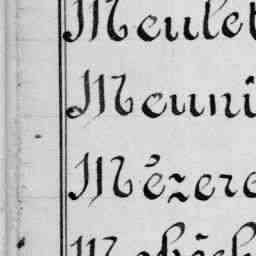 Meulet
Meuni
Mézere